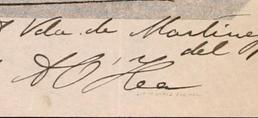 Vda. de Martine
del
A O'Hea